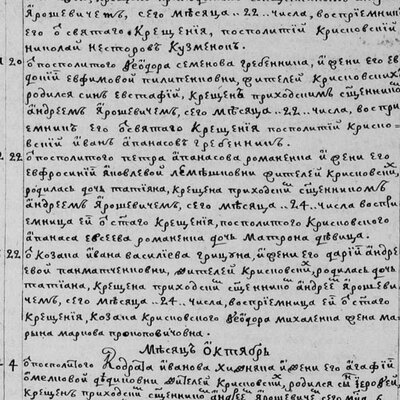 Ярошевичетъ, сего мѣсяца ..22.. числа, воспріемникъ
его ѡ святаго крещенія, посполитій Крисновскій
николай нестеровъ кузменокъ.
20 ѡ посполитого Ѳеодора семенова гребенника, и жени его ев
докіи евфимовой пилипенковни, жителей крисновскихъ
родился синъ евстафій, крещенъ приходскимъ сщенникомъ
андреемъ Ярошевичемъ, сего мѣсяца ..22.. числа, воспри
емникъ его ѡ святаго крещенія посполитій криснов
скій иванъ апанасовъ гребенникъ.
22 ѡ посполитого петра апанасова романенка и жени его
евфросиніи яковлевой лемѣшковни жителей крисновскихъ
родилась дочь татіяна, крещена приходскимъ сщенникомъ
андреемъ Ярошевичемъ, сего мѣсяца ..24.. числа воспри
емница ей ѡ стаго крещенія, посполитого крисновского
апанаса евсеева романенка дочь матрона дѣвица.
22 ѡ козака ивана василіева грицуна, и жени его даріи андре
евой панматченковни, жителей крисновскихъ, родилась дочь
татіана, крещена приходскимъ сщенникомъ андреемъ Ярошеви
чемъ, сего мѣсяца ..24.. числа, воспріемница ей ѡ стаго
крещенія, козака крисновского Ѳеодора михаленка жена ма
рына маркова прокоповичовна.
Мѣсяцъ Октябрь
4 ѡ посполитого Кодрата иванова хижняка и жени его агафіи
омелковой жителей крисновскихъ, родился синъ
крещенъ приходскимъ сщенникомъ андреемъ Ярошевичемъ сего